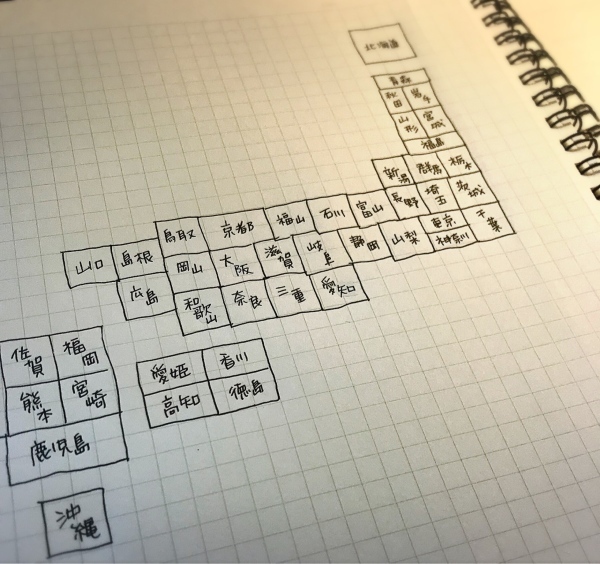 北海道
青森
秋田 岩手
山形 宮城
福島
新潟 群馬 栃木
長野 埼玉 茨城
鳥取 京都 福山 石川 富山
東京 千葉
山口 島根 岡山 大阪 滋賀 岐阜 静岡 山梨 神奈川
広島 和歌山 奈良 三重 愛知
佐賀 福岡
熊本 宮崎
鹿児島
愛姫 香川
高知 徳島
沖縄